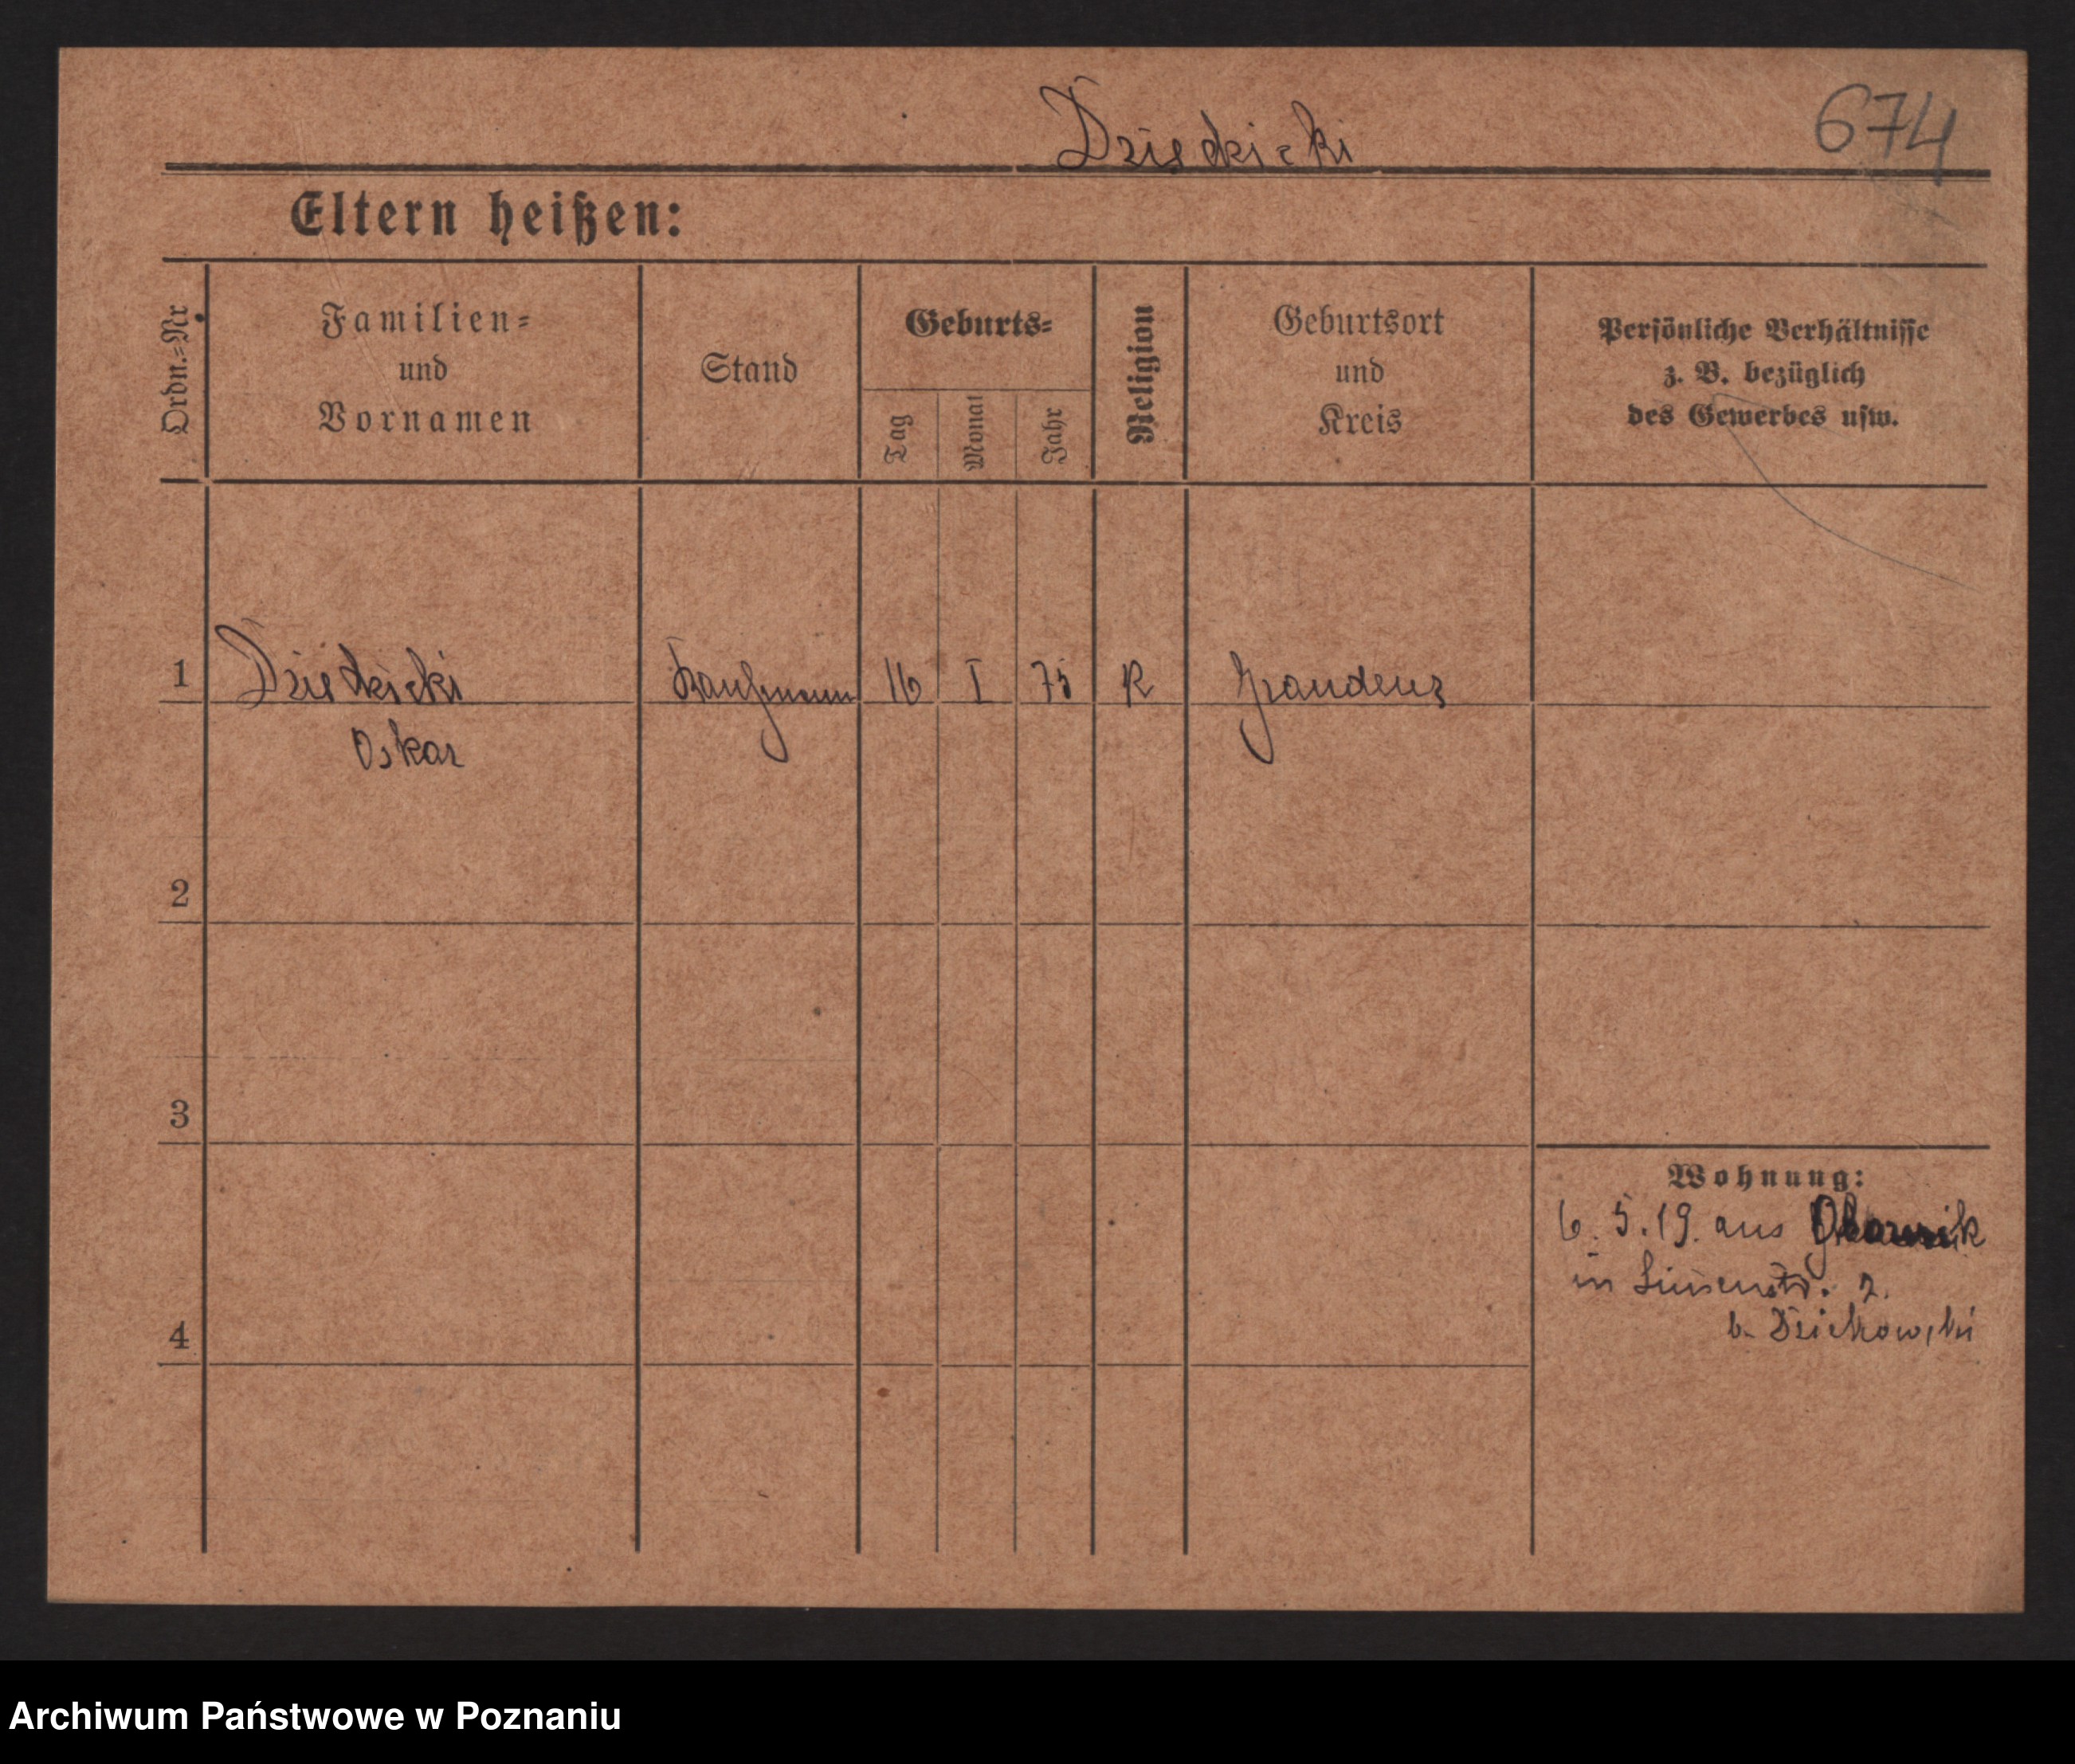 Dziedzicki
674
Eltern heißen:
Ordn.=Nr.
Familien=
und
Vornamen
Stand
Geburts=
Tag
Monat
Jahr
Religion
Geburtsort
und
Kreis
Persönliche Verhältnisse
z. B. bezüglich
des Gewerbes usw.
1 Kaufmann 16 I 75 K Graudenz
Oskar
2
3
4
Wohnung:
6. 5. 19. aus
in Luisenstr. 2.
b.
Archiwum Państwowe w Poznaniu